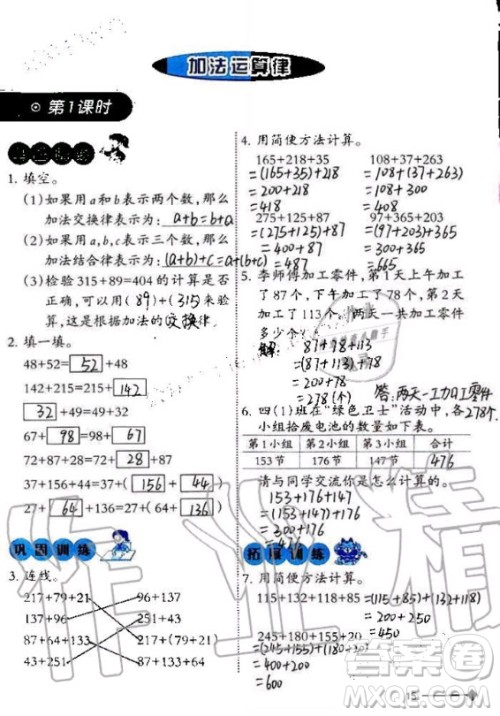 加法运算律
第1课时
1. 填空。
(1)如果用a和b表示两个数,那么
加法交换律表示为: a+b=b+a
(2)如果用a,b,c表示三个数,那么
加法结合律表示为: (a+b)+c=a+(b+c)
(3)检验315+89=404的计算是否
正确,可以用(89)+(315)来验
算,这是根据加法的交换律。
2. 填一填。
48+52=52+48
142+215=215+142
32+49=49+32
67+98=98+67
72+87+28=72+28+87
37+156+44=37+(156+44)
27+64+136=27+(64+136)
巩固训练
3. 连线。
217+79+21 96+137
137+96 251+43
87+64+133 217+(79+21)
43+251 87+133+64
4. 用简便方法计算。
165+218+35 108+37+263
=(165+35)+218 =108+(37+263)
=200+218 =108+300
=418 =408
275+125+87 97+203+365
=(275+125)+87 =(97+203)+365
=400+87 =300+365
=487 =665
5. 李师傅加工零件,第1天上午加工
了87个,下午加工了78个,第2天
加工了113个,两天一共加工零件
多少个?
解: 87+78+113
=(87+113)+78
=200+78
=278(个)
答:两天一工加工零件
278个.
6. 四(1)班在“绿色卫士”活动中,各
小组拾废电池的数量如下表。
第1小组 第2小组 第3小组 合计
153节 176节 147节 476
请与同学交流你是怎么计算的。
153+176+147
=(153+147)+176
=300+176
=476
拓展训练
7. 用简便方法计算。
115+132+118+85 =(115+85)+(132+118)
=200+250
=450
245+180+155+20
=(245+155)+(180+20)
=400+200
=600
作业精
答案圈
MXQE.COM
15